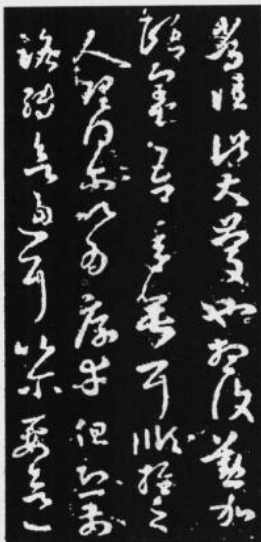 常佳此大慶也想復懃加
頤養吾年垂耳順推之
人理得爾以為厚幸但恐前
路轉欲逼耳以爾要欲一